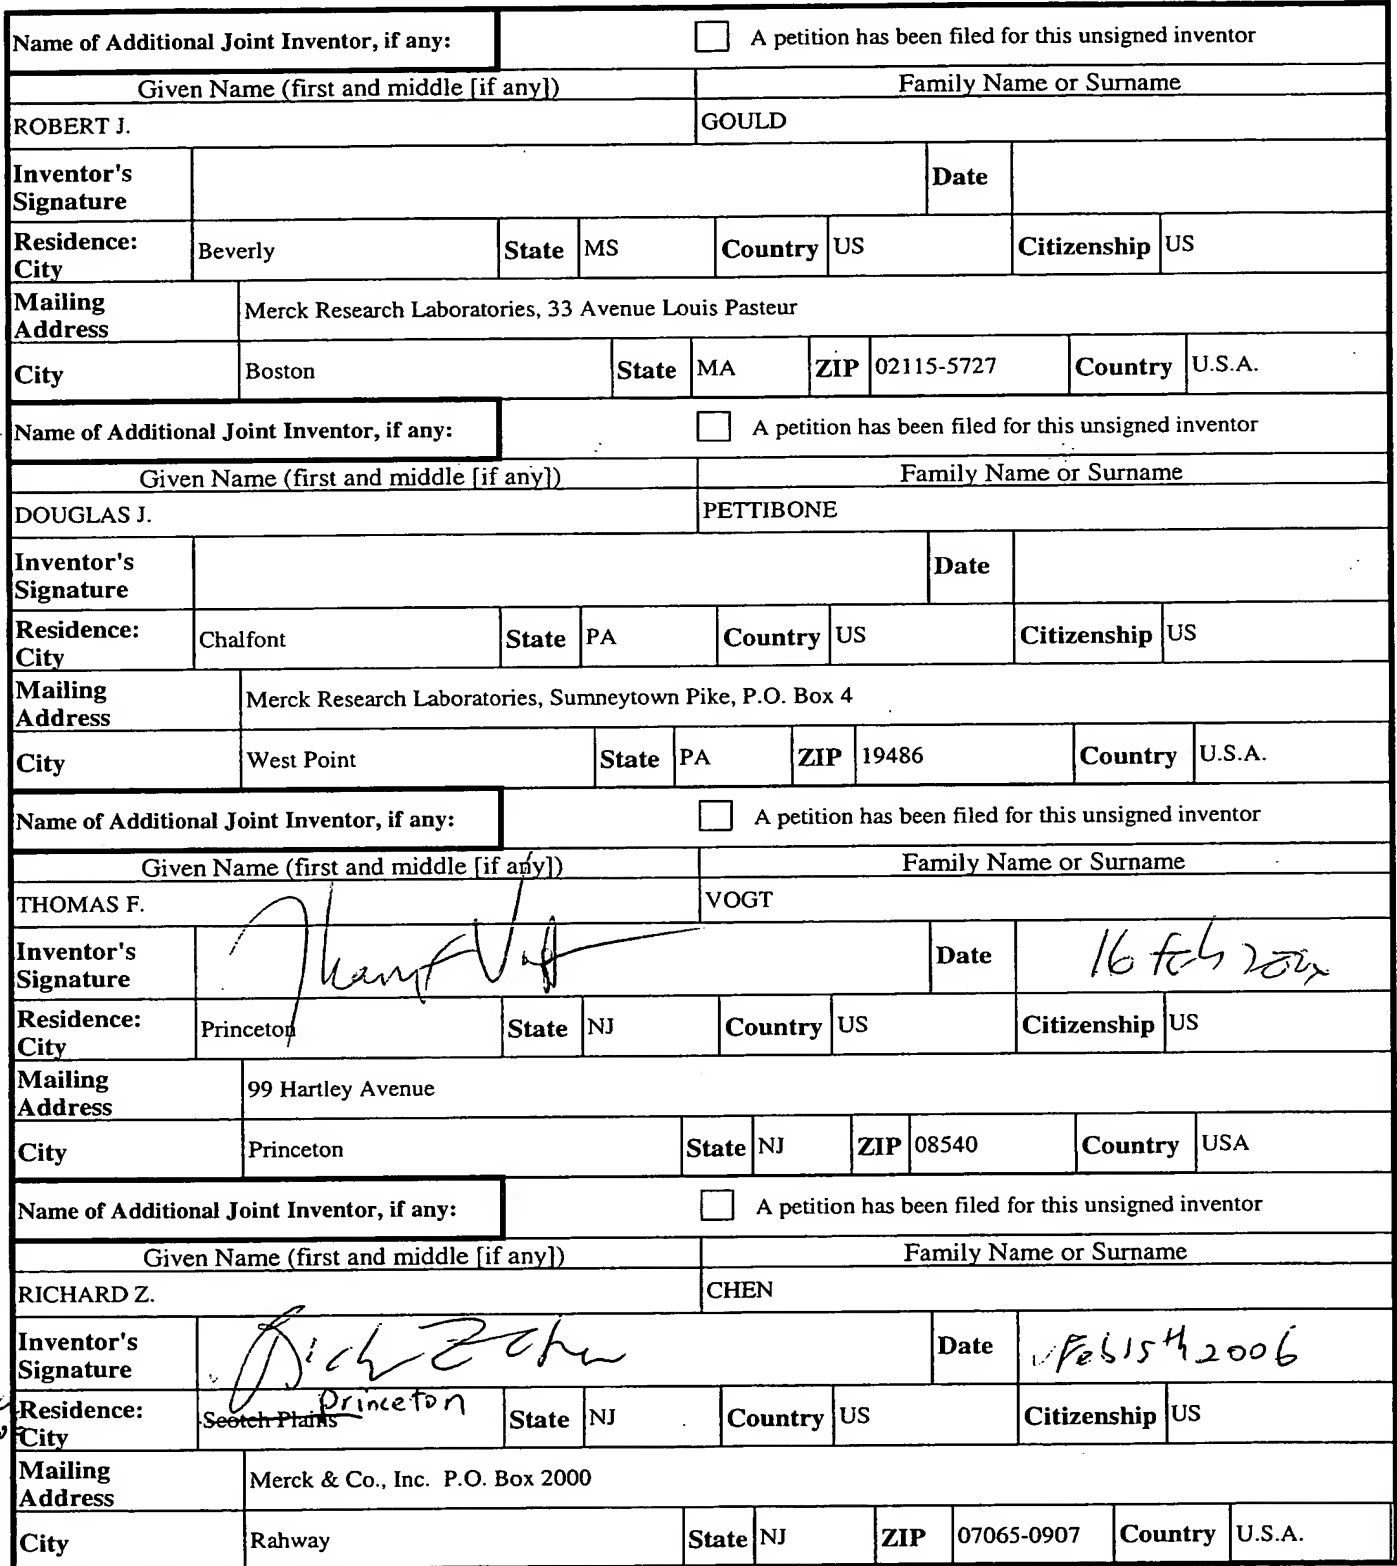 Name of Additional Joint Inventor, if any: A petition has been filed for this unsigned inventor
Given Name (first and middle [if any]) Family Name or Surname
ROBERT J. GOULD
Inventor's Signature Date
Residence: City Beverly State MS Country US Citizenship US
Mailing Address Merck Research Laboratories, 33 Avenue Louis Pasteur
City Boston State MA ZIP 02115-5727 Country U.S.A.
Name of Additional Joint Inventor, if any: A petition has been filed for this unsigned inventor
Given Name (first and middle [if any]) Family Name or Surname
DOUGLAS J. PETTIBONE
Inventor's Signature Date
Residence: City Chalfont State PA Country US Citizenship US
Mailing Address Merck Research Laboratories, Sumneytown Pike, P.O. Box 4
City West Point State PA ZIP 19486 Country U.S.A.
Name of Additional Joint Inventor, if any: A petition has been filed for this unsigned inventor
Given Name (first and middle [if any]) Family Name or Surname
THOMAS F. VOGT
Inventor's Signature Date 16 Feb
Residence: City Princeton State NJ Country US Citizenship US
Mailing Address 99 Hartley Avenue
City Princeton State NJ ZIP 08540 Country USA
Name of Additional Joint Inventor, if any: A petition has been filed for this unsigned inventor
Given Name (first and middle [if any]) Family Name or Surname
RICHARD Z. CHEN
Inventor's Signature Rich Z Chen Date Feb 15th 2006
Residence: City Scotch Plains Princeton State NJ Country US Citizenship US
Mailing Address Merck & Co., Inc. P.O. Box 2000
City Rahway State NJ ZIP 07065-0907 Country U.S.A.